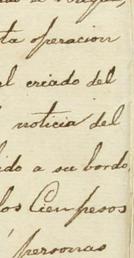 ta operacion
al criado del
noticia del
ido a su bordo
los Cien pesos
personas